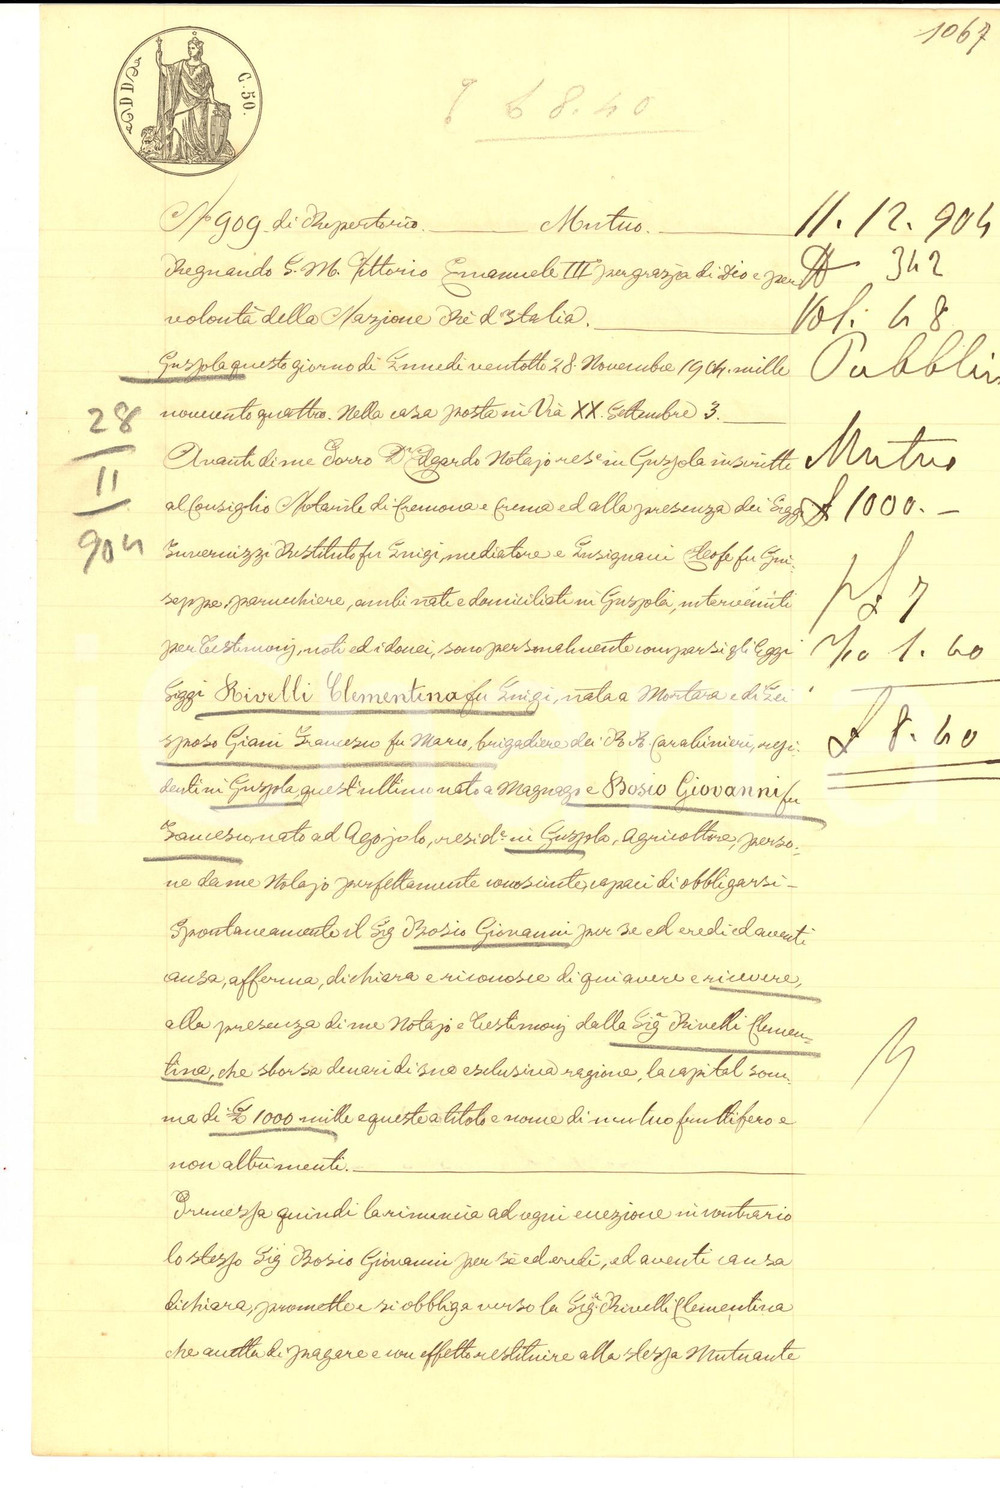 1067
C. 50.
£ 8.40
N. 909 di Repertorio. Mutuo.
Regnando S. M. Vittorio Emanuele III per grazia di Dio e per
volontà della Nazione Rè d'Italia.
Gussola questo giorno di Lunedi ventotto 28 Novembre 1904. mille
novecento quattro. Nella casa posta in Via XX Settembre 3.
Avanti di me Porro Dr. Edgardo Notajo rese in Gussola inscritto
al Consiglio Notarile di Cremona e Crema ed alla presenza dei Sigg.
Invernizzi Restituto fu Luigi, mediatore e Lusignani Cleofe fu Giu-
seppe, parucchiere, ambi nati e domiciliati in Gussola, intervenuti
per testimonj, noti ed idonei, sono personalmente comparsi gli
Siggi Rivelli Clementina fu Luigi, nata a Mortara e di Lei
sposo Giani Francesco fu Marco, brigadiere dei R. R. Carabinieri, resi-
denti in Gussola, quest'ultimo nato a Magnago e Bosio Giovanni fu
Francesco, nato ad Agojolo, reside in Gussola, agricoltore, perso-
ne da me Notajo perfettamente conosciute, capaci di obbligarsi -
Spontaneamente il Sig Bosio Giovanni per se ed eredi ed aventi
causa, afferma, dichiara e riconosce di qui avere e ricevere,
alla presenza di me Notajo e testimonj dalla Siga Rivelli Clemen-
tina, che sborsa denari di sua esclusiva ragione, la capital som-
ma di £ 1000 mille e questo a titolo e nome di mutuo fruttifero e
non altrimenti.
Premessa quindi la rinuncia ad ogni eccezione in contrario
lo stesso Sig Bosio Giovanni per sè ed eredi, ed aventi causa
dichiara, promette e si obbliga verso la Siga Rivelli Clementina
che accetta di pagare e con effetto restituire alla stessa Mutuante
28
11
904
11. 12. 904
№ 342
Vol: 48
Pubblici
Mutuo
£ 1000. -
7
1. 40
£ 8. 40